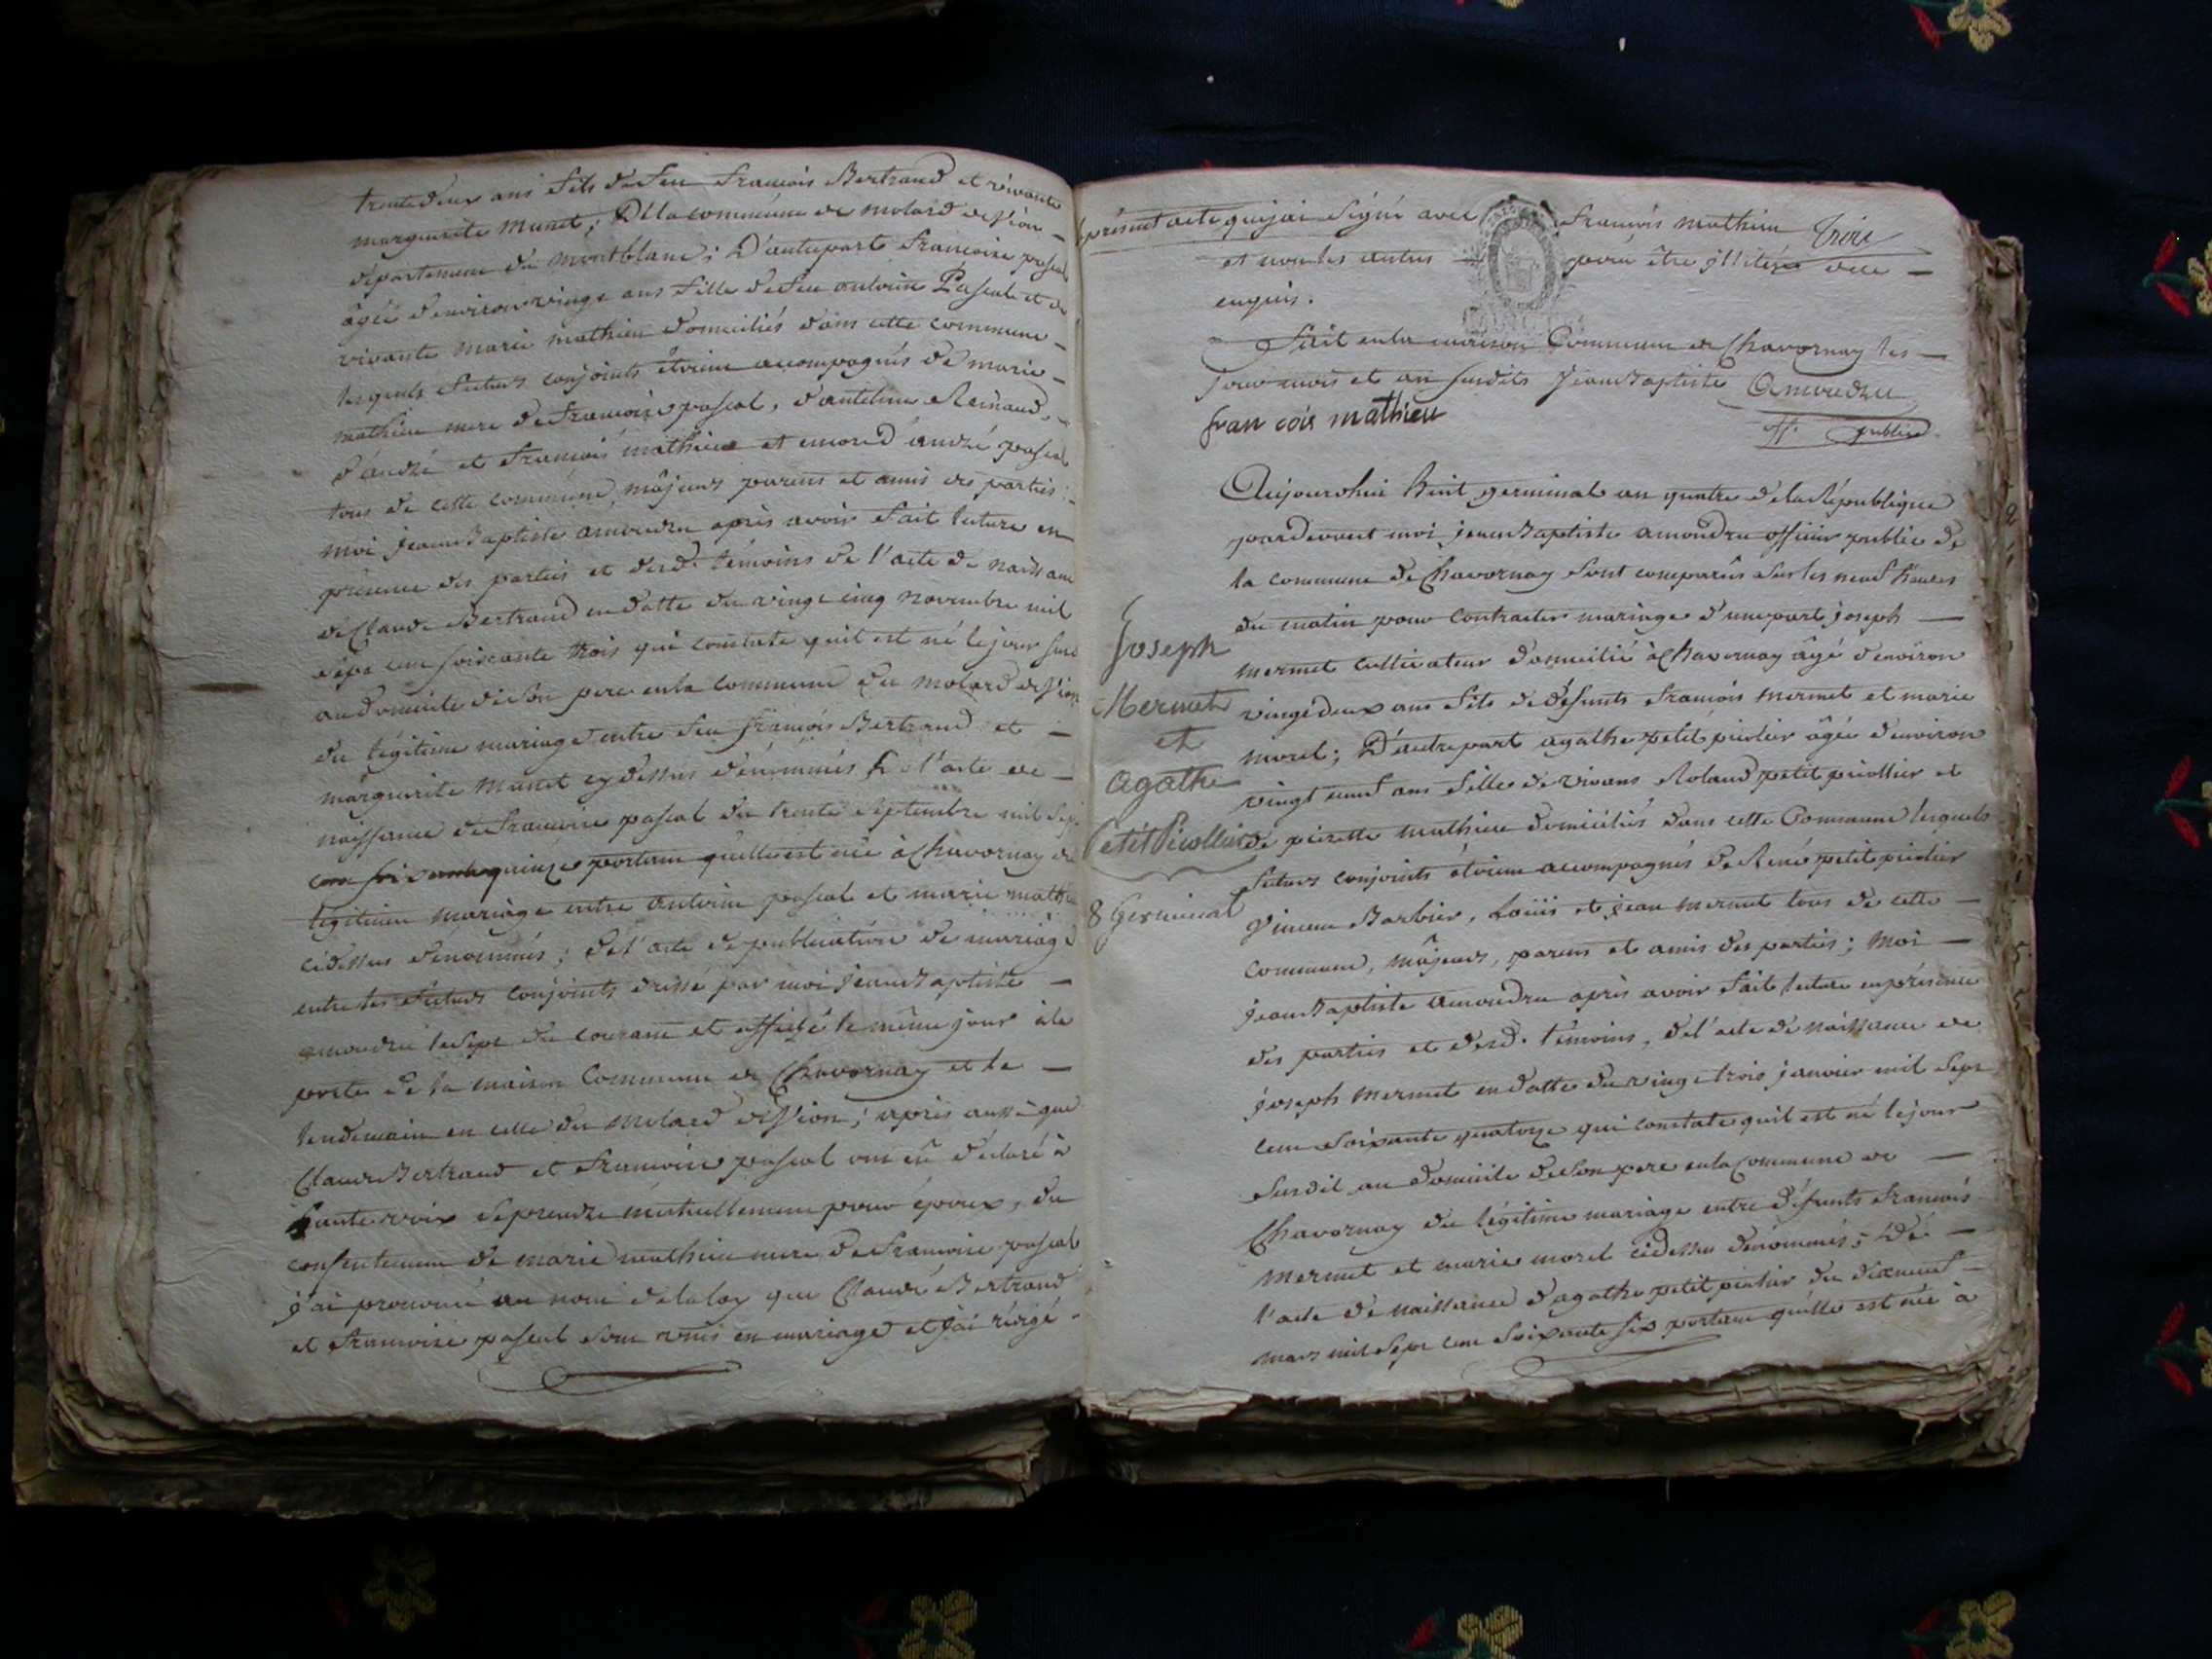 trente deux ans fils de feu françois Bertrand et vivante
marguerite Munet; De la commune de molard de Vion
département du montblanc; D'autrepart françoise pascal
âgée d'environ vingt ans fille de feu antoine Pascal et de
vivante marie mathieu domiciliés dans cette commune
lesquels futurs conjoints étoient accompagnés de marie
mathieu mere de françoise pascal, d'antelme Reinaud,
d'andré et françois mathieu et encore d'andré pascal
tous de cette commune, mâjeurs parens et amis des parties;
moi jean Baptiste amoudru après avoir fait lecture en
présence des parties et desd. témoins de l'acte de naissance
de Claude Bertrand en datte du vingt cinq novembre mil
sept cen soixante trois qui constate quil est né le jour susd
au domicile de son pere en la commune du molard de Vion
du légitime mariage entre feu françois Bertrand et
marguerite Munet cy dessus dénommés de l'acte de
naissance de françoise pascal du trente septembre mil sept
cen soixante quinze portant quelle est née à Chavornay du
légitime mariage entre antoine pascal et marie mathieu
cidessus dénommés; de l'acte de publication de mariage
entre les futurs conjoints dréssé par moi jean Baptiste
amoudru le sept du courant et affiché le même jour à la
porte de la maison Commune de Chavornay et le
lendemain en celle du molard de Vion; après aussi que
Claude Bertrand et françoise pascal ont eû déclaré à
haute voix se prendre mutuellement pour époux, du
consentement de marie mathieu mere de françoise pascal
j'ai prononcé au nom de la loy que Claude Bertrand
et françoise pascal sont unis en mariage et j'ai rédigé
présent acte que j'ai signé avec françois mathieu
et non les autres pour être illitérés de ce
enquis.
Fait en la maison Commune de Chavornay les
jour mois et an susdits Jean Baptiste Amoudru
fran cois mathieu
off. public
Aujourdhui huit germinal an quatre de la République
pardevant moi jean Baptiste amoudru officier public de
la commune de Chavornay sont comparûs sur les neuf heures
du matin pour contracter mariage d'une part joseph
mermet cultivateur domicilié à Chavornay âgé d'environ
vingt deux ans fils de défunts françois mermet et marie
morel; D'autrepart agathe petit picollier âgée d'environ
vingt neuf ans fille de vivans Roland petit picollier et
de pierette mathieu domiciliés dans cette Commune lesquels
futurs conjoints étoient accompagnés de René petit picolier
Vincent Barbier, Loüis et jean mermet tous de cette
commune, mâjeurs, parens et amis des parties; moi
jean Baptiste amoudru après avoir fait lecture en présence
des parties et desd. témoins, de l'acte de naissance de
joseph mermet en datte du vingt trois janvier mil sept
cen soixante quatorze qui constate quil est né le jour
susdit au domicile de son pere en la Commune de
Chavornay du légitime mariage entre défunts françois
mermet et marie morel cidessus dénommés; De
l'acte de naissance d'agathe petit picolier du dixneuf
mars mil sept cen soixante six portant quelle est née à
Joseph
Mermet
et
agathe
Petit Picollier
8 Germinal